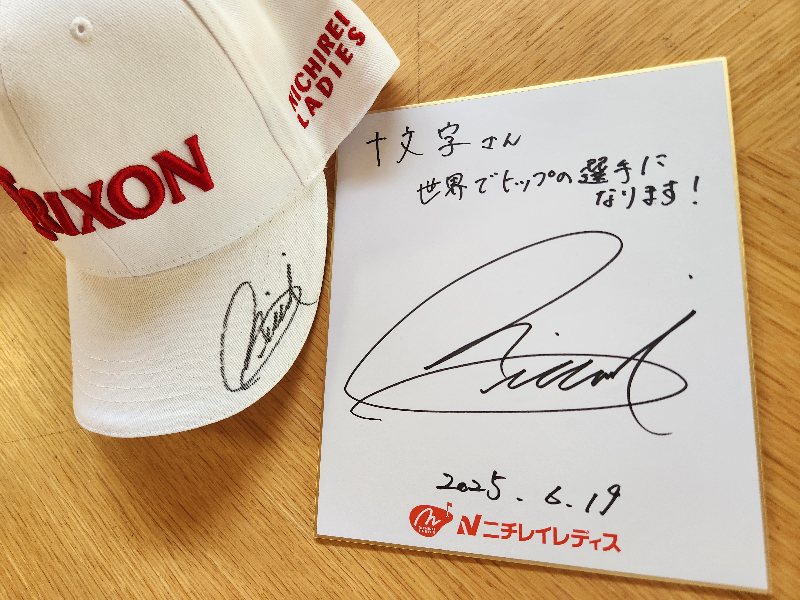 RIXON
NICHIREI
LADIES
十文字さん
世界でトップの選手に
なります！
2025.6.19
Nニチレイレディス